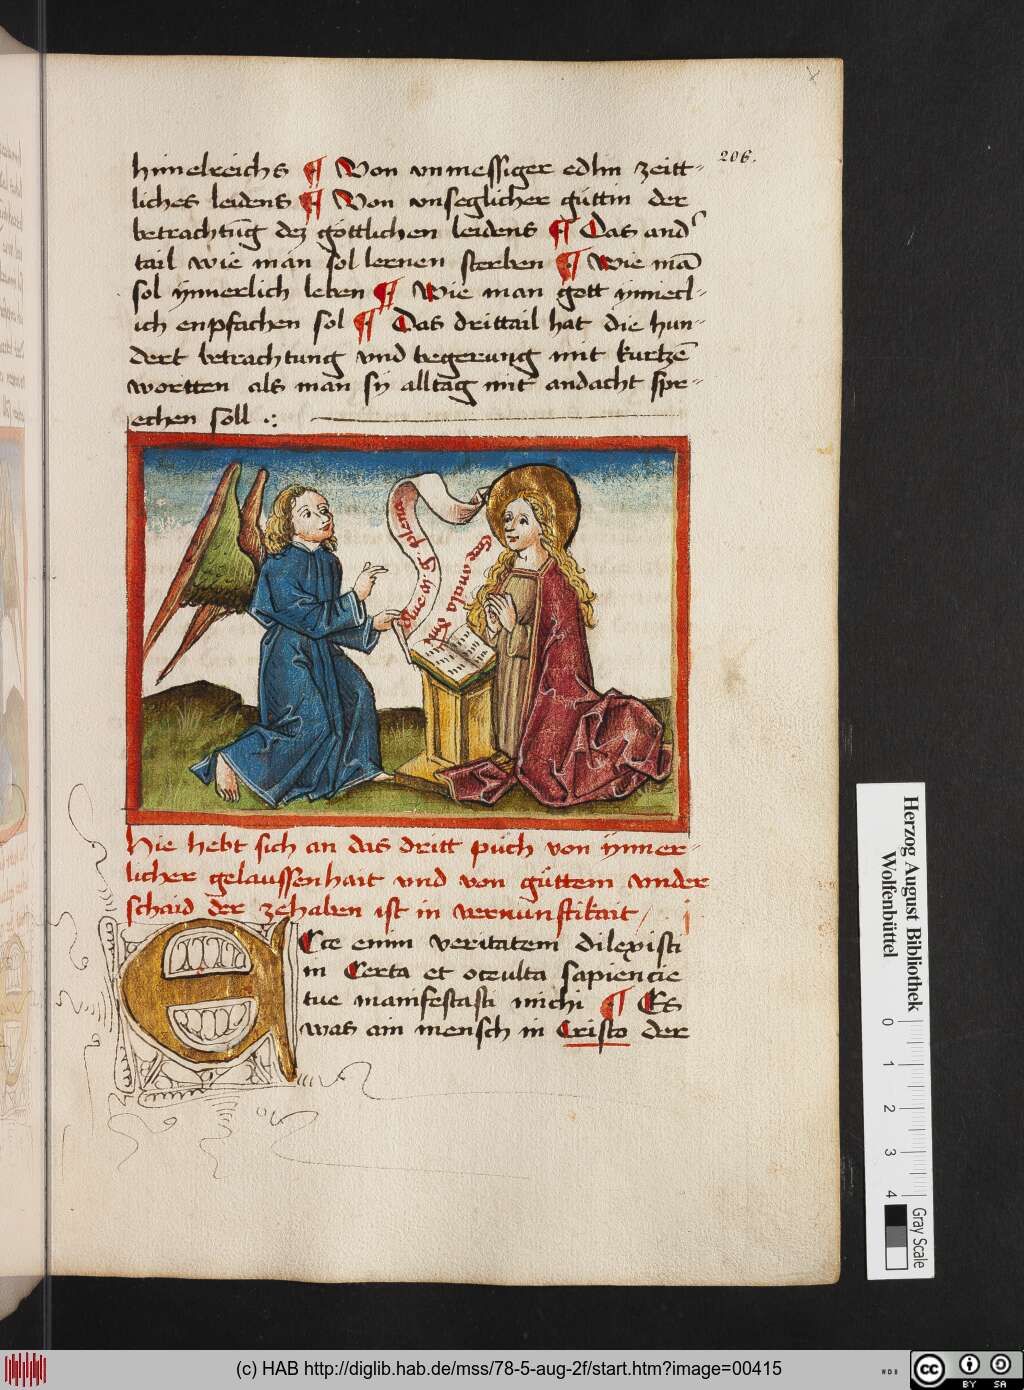 206.
himelreichs ¶ Von vnmessiger edlin zeitt-
liches leidens ¶ Von vnseglicher güttin der
betrachtūg dez göttlichen leidens ¶ Das and
tail wie man sol lernen sterben ¶ Wie mā
sol ÿnnerlich leben ¶ Wie man gott
ich enpfachen sol ¶ Das drittail hat die hun-
dert betrachtung vnd begerung mit kurtzē
wortten als man sÿ alltag mit andacht spre-
echen soll .:
plena
Ecce ancila
Hie hebt sich an das dritt püch von ÿnner-
licher gelaussenhait vnd von güttem vnder
schaid der zehaben ist in vernunftikait
ECce enim veritatem dilexisti
in Certa et occulta sapiencie
tue manifestasti michi ¶ Es
was ain mensch in Cristo der
Herzog August Bibliothek
Wolfenbüttel
0 1 2 3 4
Gray Scale
(c) HAB http://diglib.hab.de/mss/78-5-aug-2f/start.htm?image=00415
WDB
cc BY SA